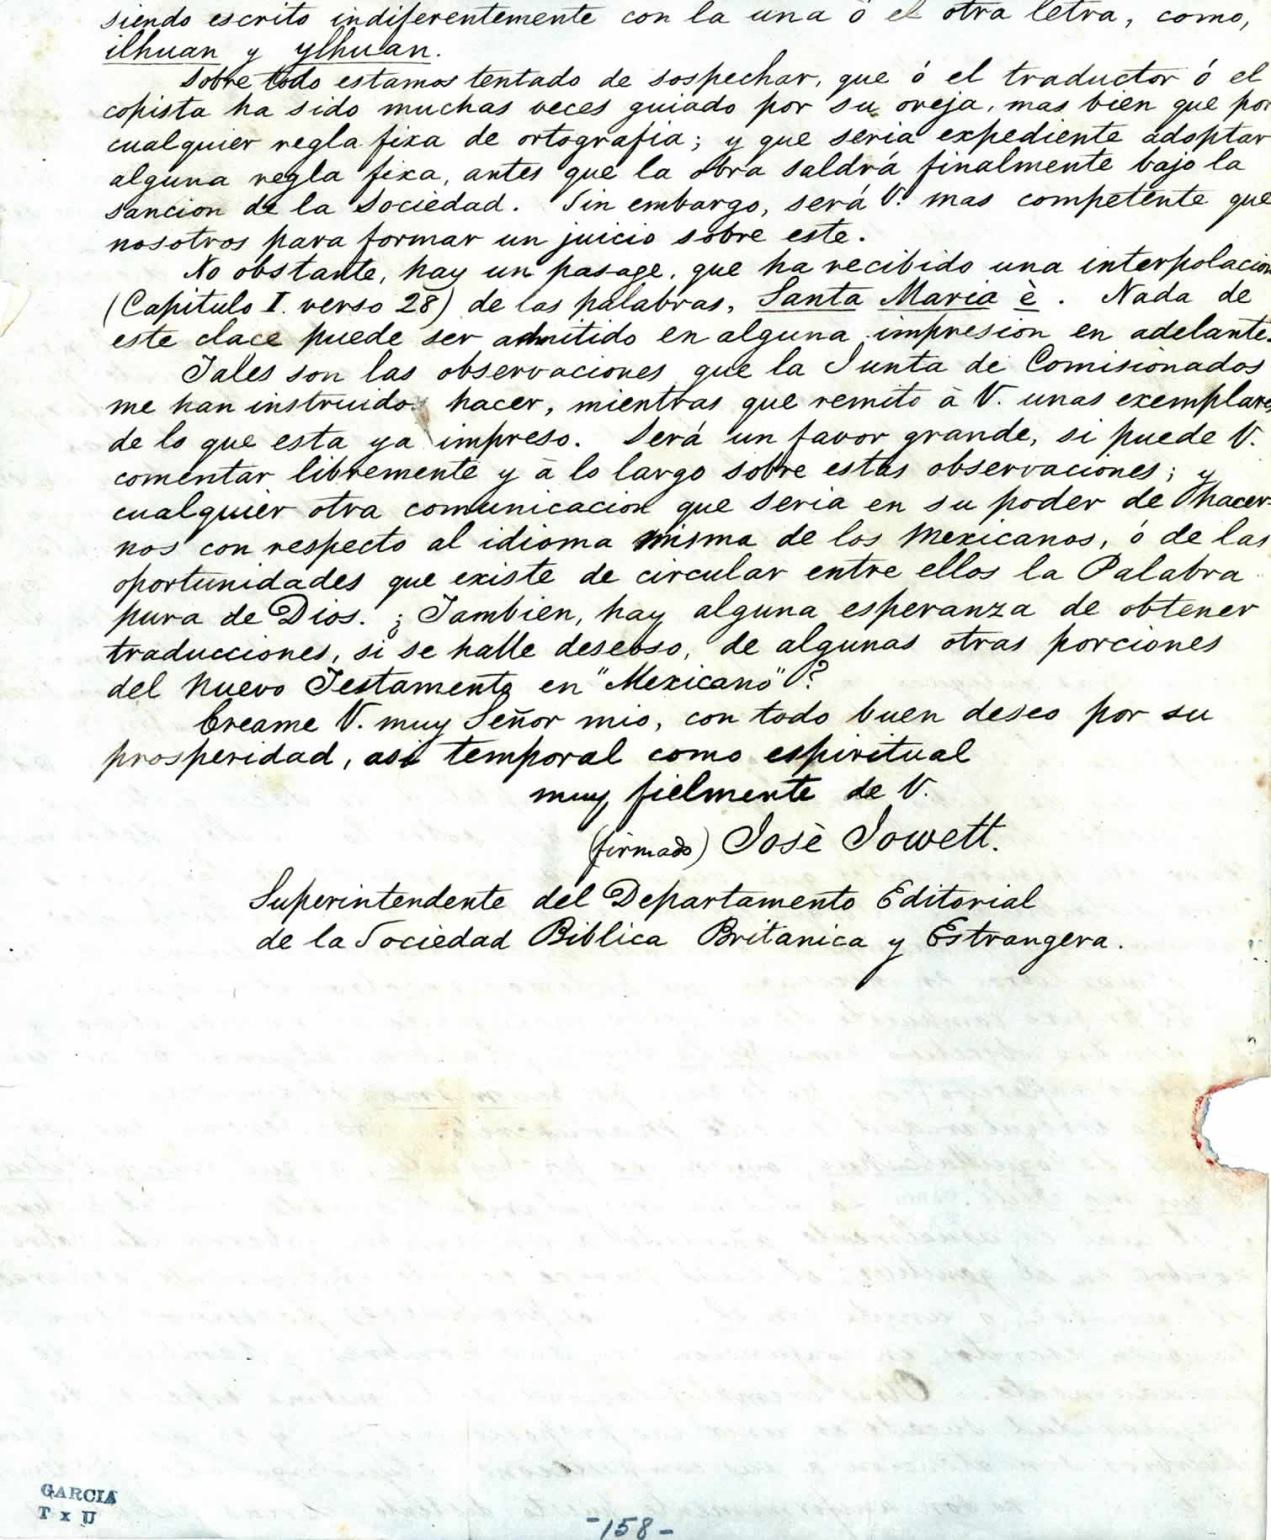 siendo escrito indiferentemente con la una ó el otra letra, como,
ilhuan y ylhuan.
Sobre todo estamos tentado de sospechar, que ó el traductor ó el
copista ha sido muchas veces guiado por su oreja, mas bien que por
cualquier regla fixa de ortografia; y que seria expediente adoptar
alguna regla fixa, antes que la obra saldrá finalmente bajo la
sancion de la Sociedad. Sin embargo, será V. mas competente que
nosotros para formar un juicio sobre este.
No obstante, hay un pasage, que ha recibido una interpolacion
(Capitulo I. verso 28) de las palabras, Santa Maria è. Nada de
este clace puede ser admitido en alguna impresion en adelante.
Tales son las observaciones, que la Junta de Comisionados
me han instruido hacer, mientras que remito à V. unas exemplares
de lo que esta ya impreso. Será un favor grande, si puede V.
comentar libremente y à lo largo sobre estas observaciones; y
cualquier otra comunicacion que seria en su poder de hacer-
nos con respecto al idioma misma de los Mexicanos, ó de las
oportunidades que existe de circular entre ellos la Palabra
pura de Dios. ¿Tambien, hay alguna esperanza de obtener
traducciones, si se halle deseoso, de algunas otras porciones
del Nuevo Testamento en "Mexicano"?
Creame V. muy Señor mio, con todo buen deseo por su
prosperidad, asi temporal como espiritual
muy fielmente de V.
(firmado) Josè Jowett.
Superintendente del Departamento Editorial
de la Sociedad Biblica Britanica y Estrangera.
GARCIA
T x U
-158-